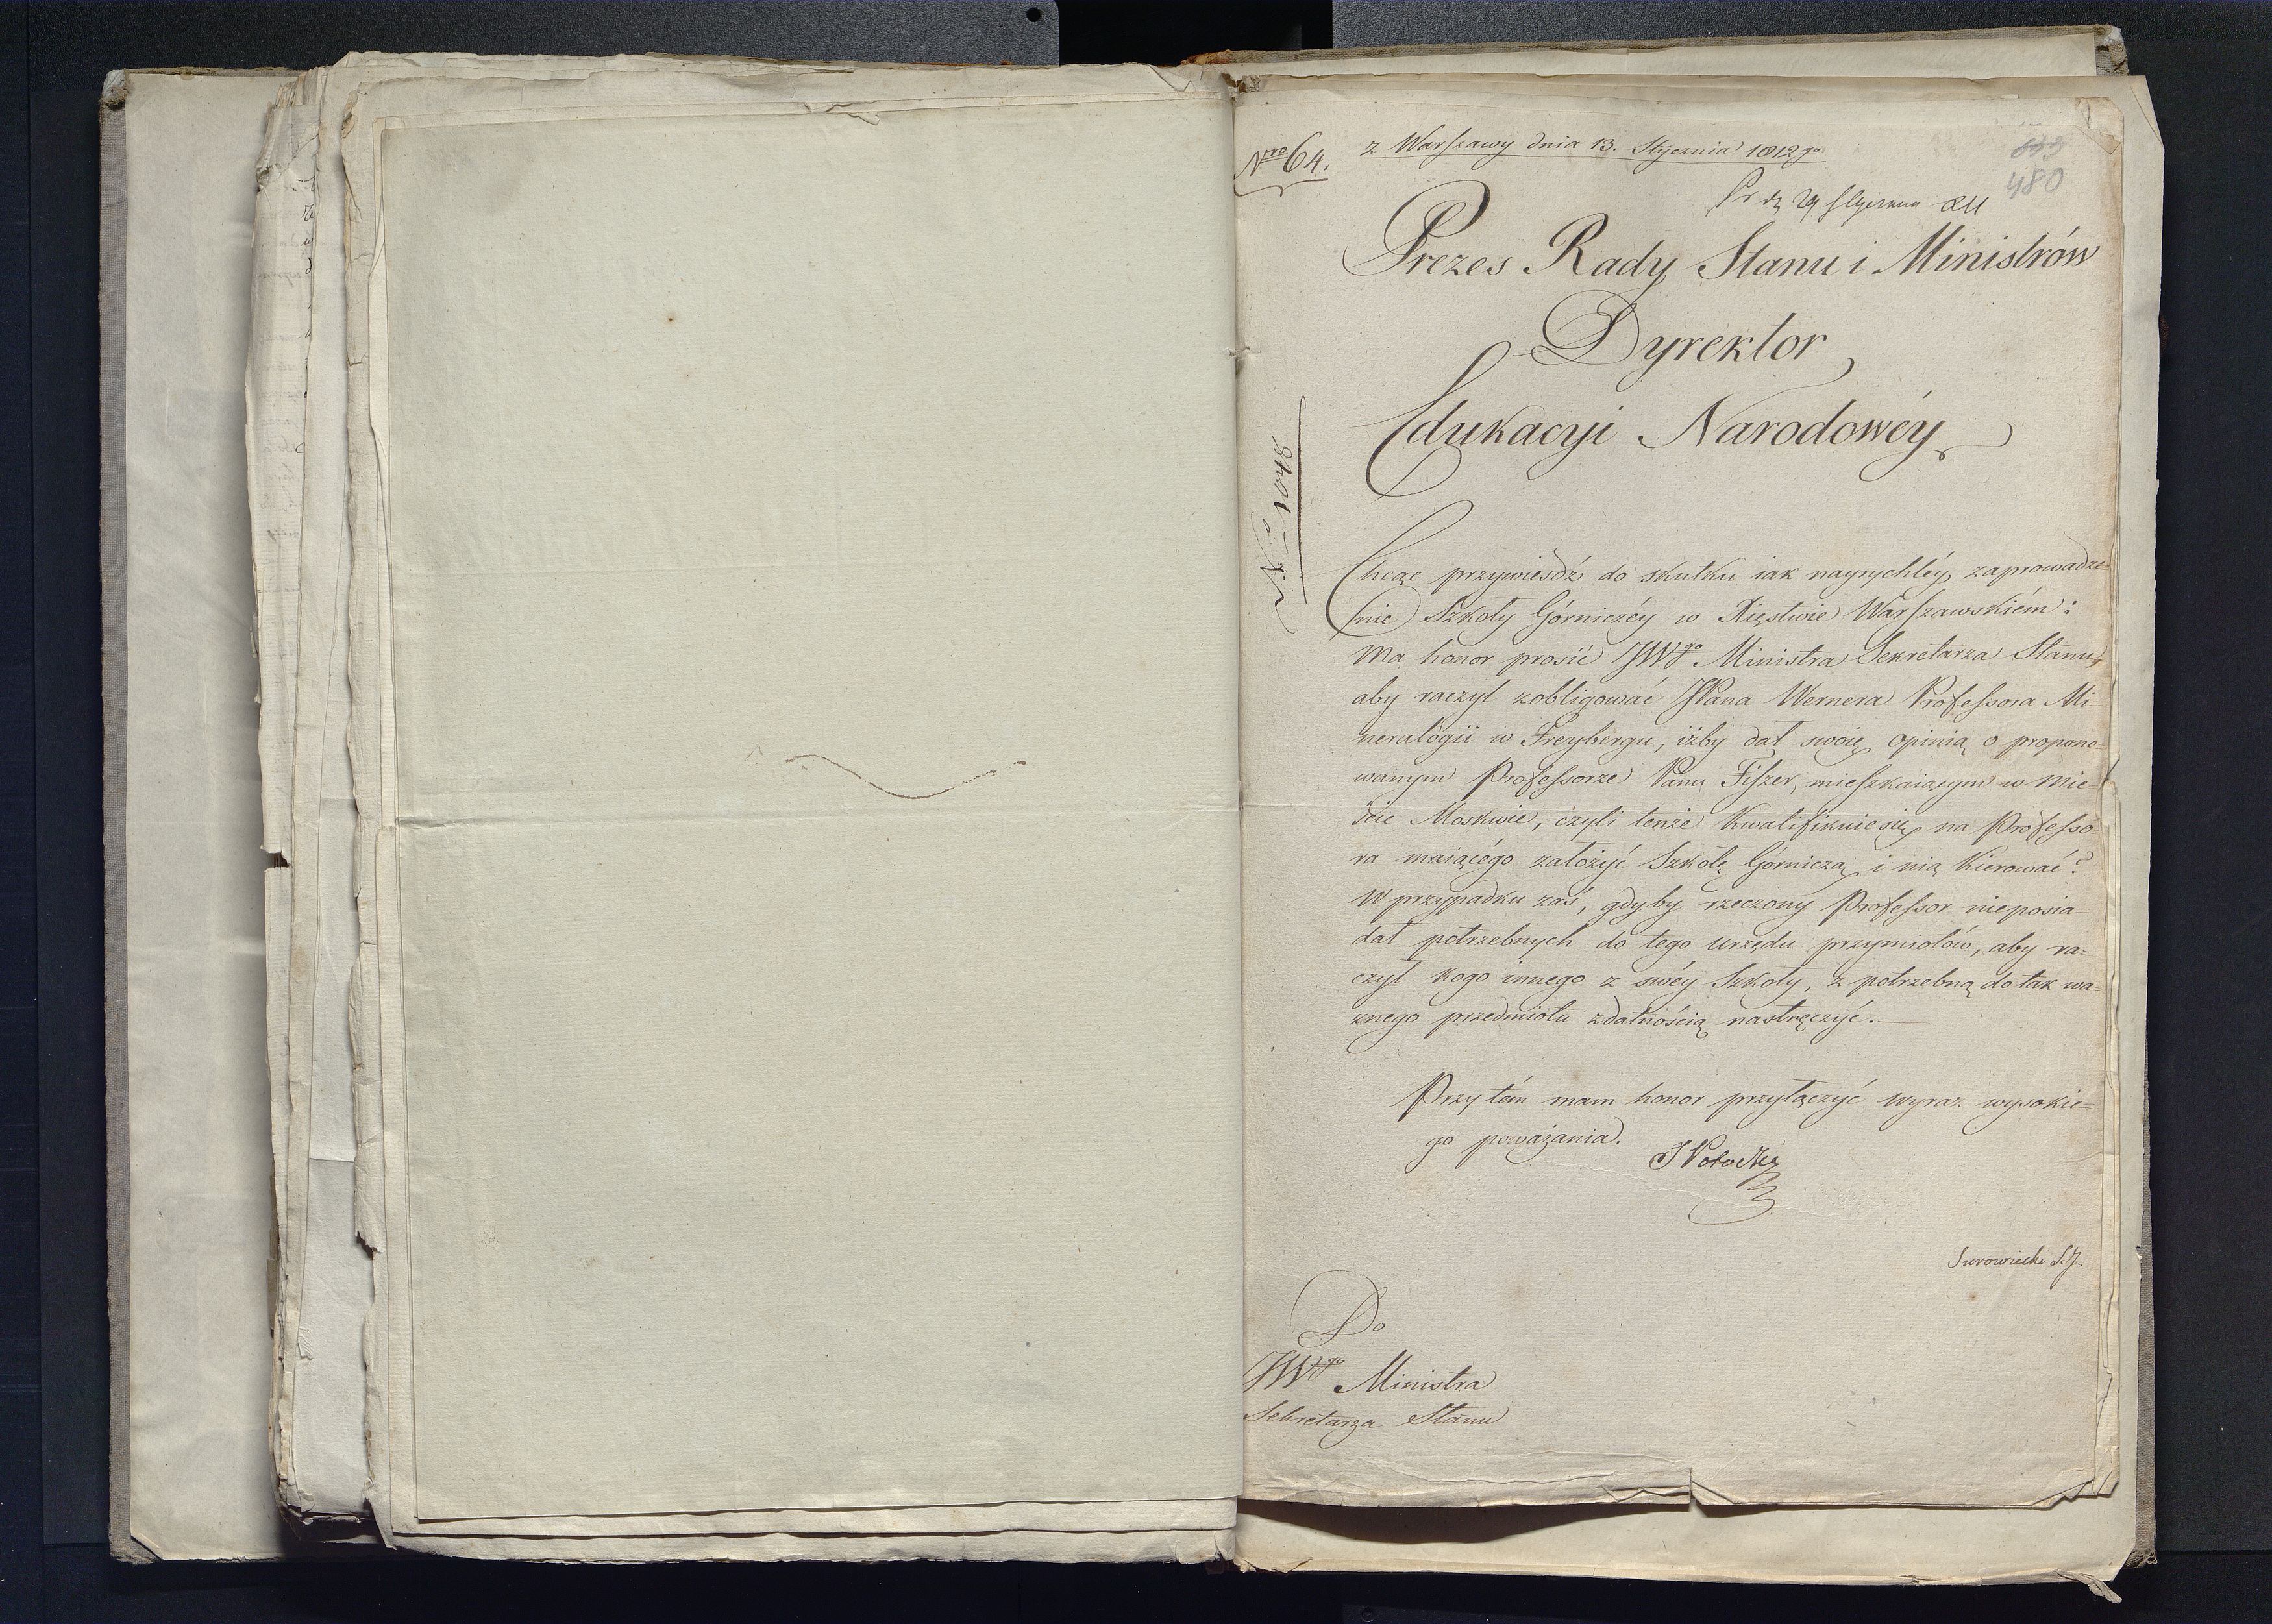 Nro 64.
z Warszawy dnia 13. Stycznia 1812go
633
480
Pr dę 29 Stycznia 812
Prezes Rady Stanu i Ministrów
Dyrektor
Edukacyi Narodowéy
No 1048
Chcąc przywieśdź do skutku iak nayrychléy zaprowadze-
nie Szkoły Górniczéy w Xięstwie Warszawskiém:
Ma honor prosić JWgo Ministra Sekretarza Stanu,
aby raczył zobligować JPana Wernera Professora Mi-
neralogii w Freybergu, iżby dał swoię opinią o propono-
wanym Professorze Panu Fiszer, mieszkaiącym w Mie-
ście Moskwie, czyli tenże kwalifikuie się na Professo-
ra maiącégo założyć Szkołę Górniczą i nią kierować?
W przypadku zaś, gdyby rzeczony Professor nieposia-
dał potrzebnych do tego urzędu przymiotów, aby ra-
czył kogo innego z swéy Szkoły, z potrzebną do tak wa-
żnego przedmiotu zdatnością nastręczyć.
Przytém mam honor przyłączyć wyraz wysokie-
go poważania.
S Potocki
Surowiecki S.J.
Do
JWgo Ministra
Sekretarza Stanu